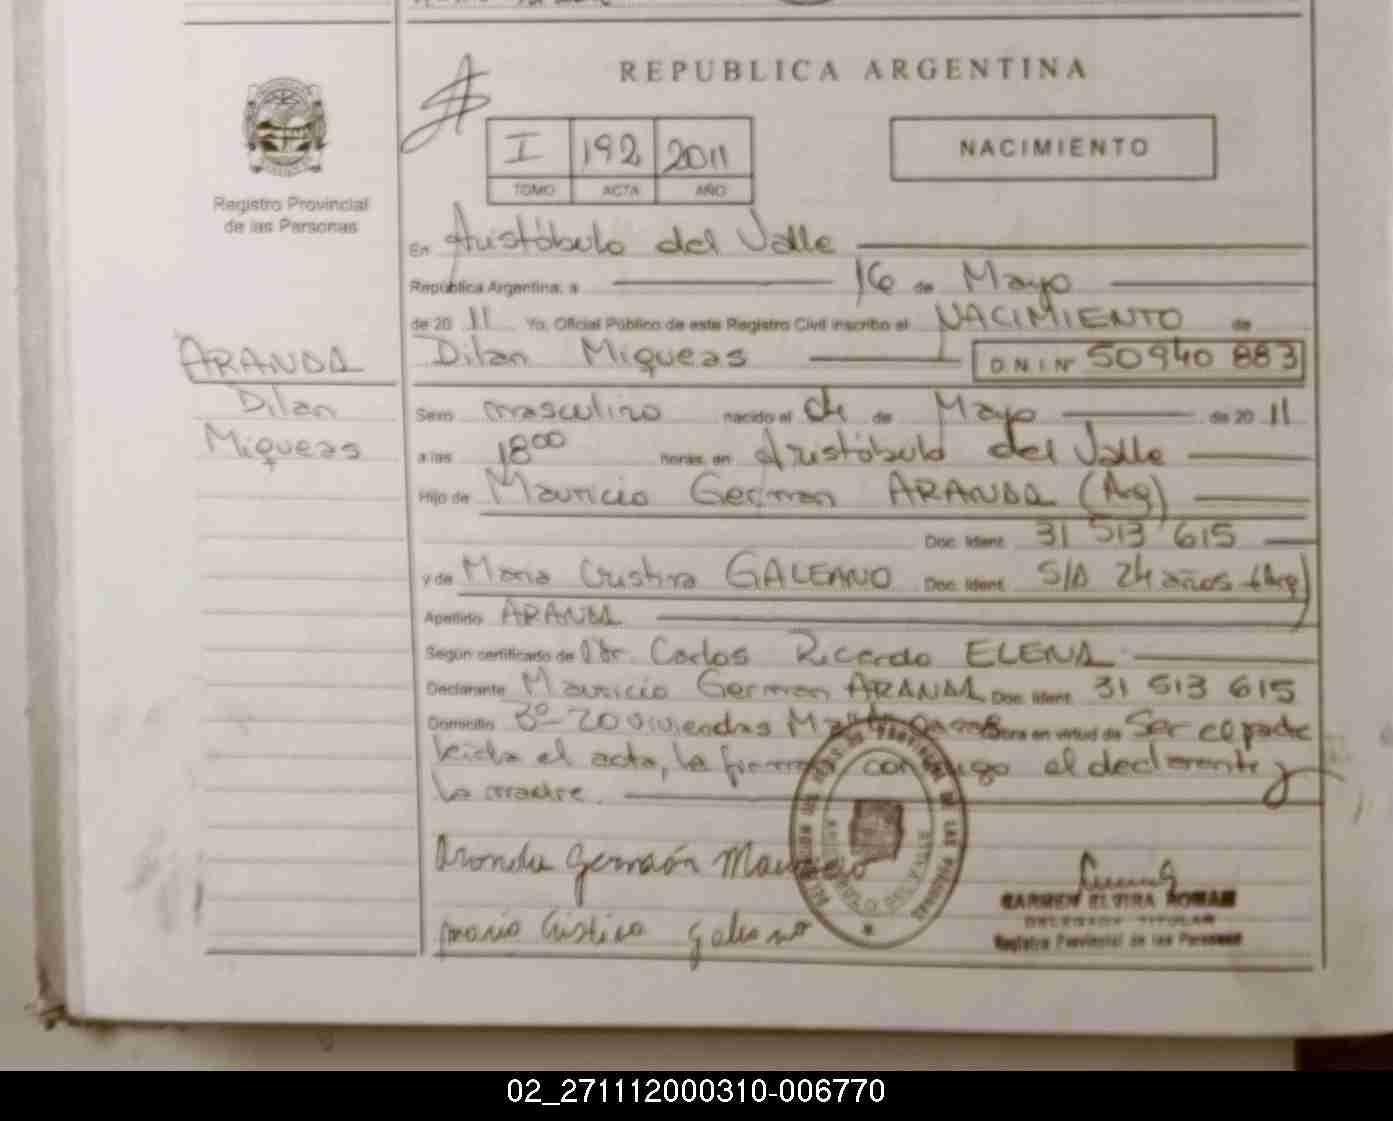 REPUBLICA ARGENTINA
I 192 2011
TOMO ACTA AÑO
NACIMIENTO
Registro Provincial
de las Personas
En Aristóbulo del Valle
República Argentina, a 16 de Mayo
de 20 11 Yo, Oficial Público de este Registro Civil inscribo el NACIMIENTO de
ARANDA
Dilan Miqueas D.N.I Nº 50 940 883
Dilan
Miqueas
Sexo masculino nacido el de Mayo de 20 11
a las 18 00 horas, en Aristóbulo del Valle
Hijo de Mauricio German ARANDA (Arg)
Doc. Ident. 31 513 615
y de Maria Cristina GALEANO Doc. Ident. S/D 24 años (Arg)
Apellido ARANDA
Según certificado de Dr. Carlos Ricardo ELENA
Declarante Mauricio German ARANDA Doc. Ident. 31 513 615
Domicilio Bº 20 viviendas obra en virtud de Ser el padre
Leida el acta, la firma conmigo el declarante y
la madre.
Aranda Germaón Mauricio
maria Cristina galeano
CARMEN ELVIRA ROMAN
DELEGADA TITULAR
Registro Provincial de las Personas
02_271112000310-006770